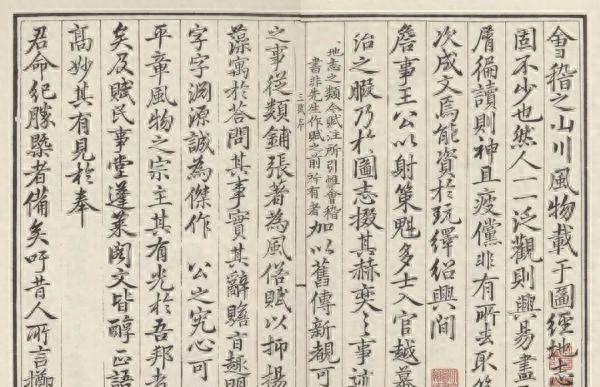 會稽之山川風物載于圖經地志
固不少也然人一一泛觀則興易盡
屑徧讀則神且疲儻非有所去取
次成文焉能資於玩繹紹興間
詹事王公以射策魁多士入官越幕
治之暇乃於圖志掇其赫奕之事述
地志之類今賦注所引惟會稽
書非先生作賦之前所有者
三賦序
加以舊傳新覩可
之事從類鋪張著為風俗賦以抑揚
藻寓於荅問其事實其辭贍音韻
字字淵源誠為傑作 公之究心可
平章風物之宗主其有光於吾邦者
矣及賦民事堂蓬萊閣文皆醇正語
高妙其有見於奉
君命紀勝槩者備矣吁昔人所言擲